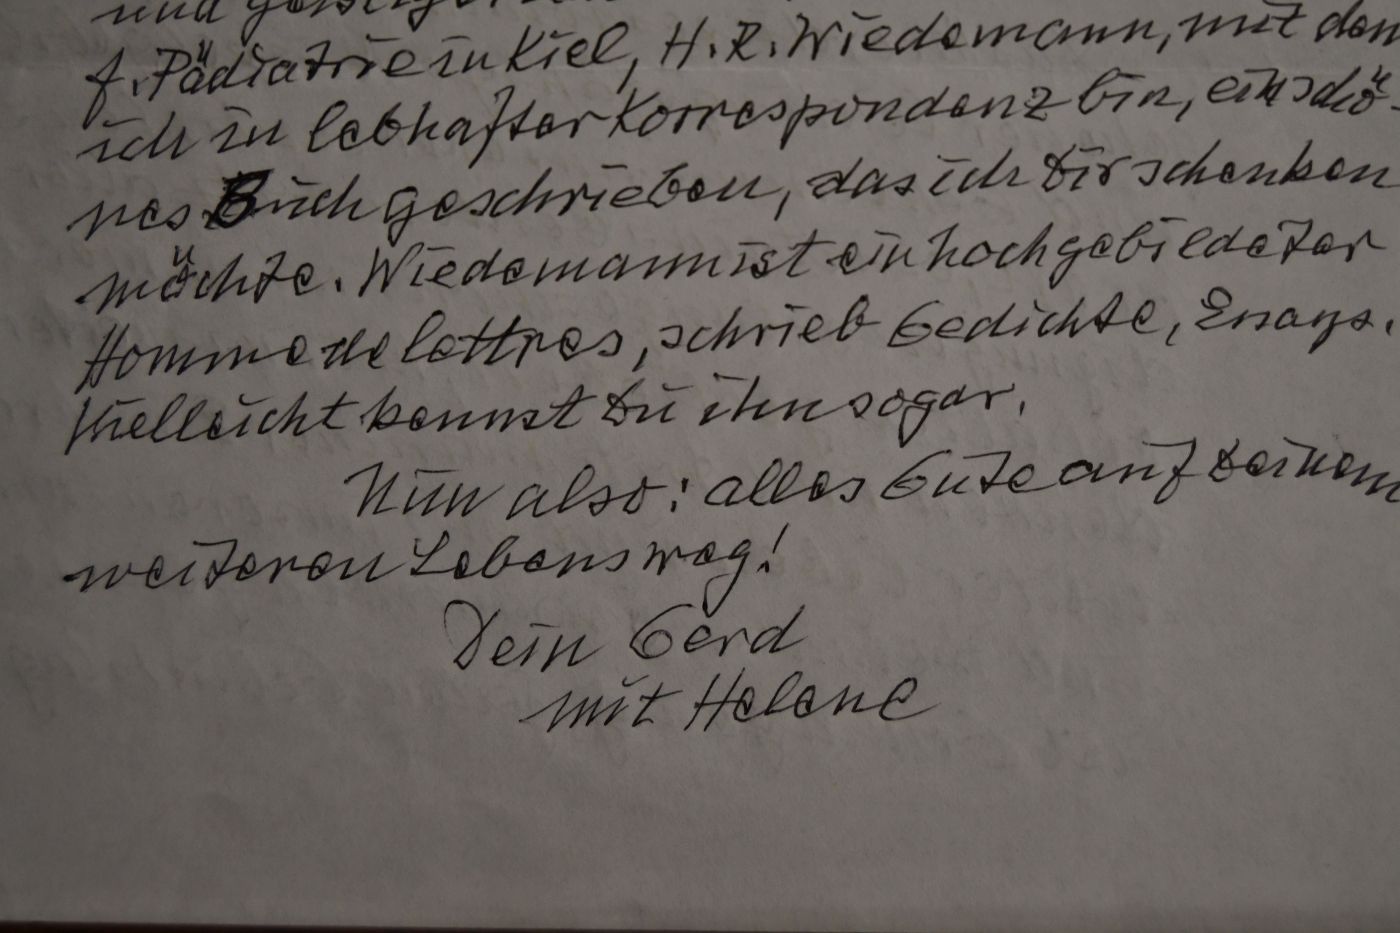 und
f. Pädiatrie in Kiel, H. R. Wiedemann, mit dem
ich in lebhafter Korrespondenz bin, ein schö
nes Buch geschrieben, das ich Dir schenken
möchte. Wiedemann ist ein hochgebildeter
Homme de lettres, schrieb Gedichte, Essays.
Vielleicht kennst Du ihn sogar.
Nun also: alles Gute auf Deinem
weiteren Lebensweg!
Dein Gerd
mit Helene